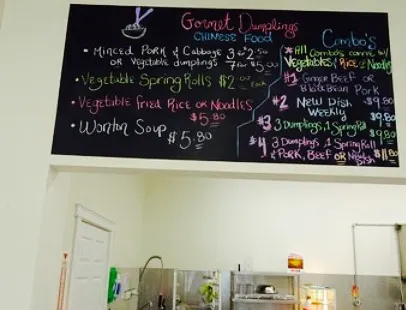 Gormet Dumplings
CHINESE FOOD
• Minced Pork & Cabbage 3 for $2.50
or Vegetable dumplings 7 for $5.00
• Vegetable Spring Rolls $2.00 each
• Vegetable Fried Rice or Noodles
$5.80
• Wonton Soup $5.80
Combo's
* All Combo's come w/
Vegetables / Rice or Noodles
#1 Ginger Beef or
Black Bean Pork
$9.80
#2 New Dish
Weekly
$9.80
#3 3 Dumplings, 1 Spring Roll
$9.80
#4 3 Dumplings, 1 Spring Roll
& Pork, Beef or New Dish $11.80